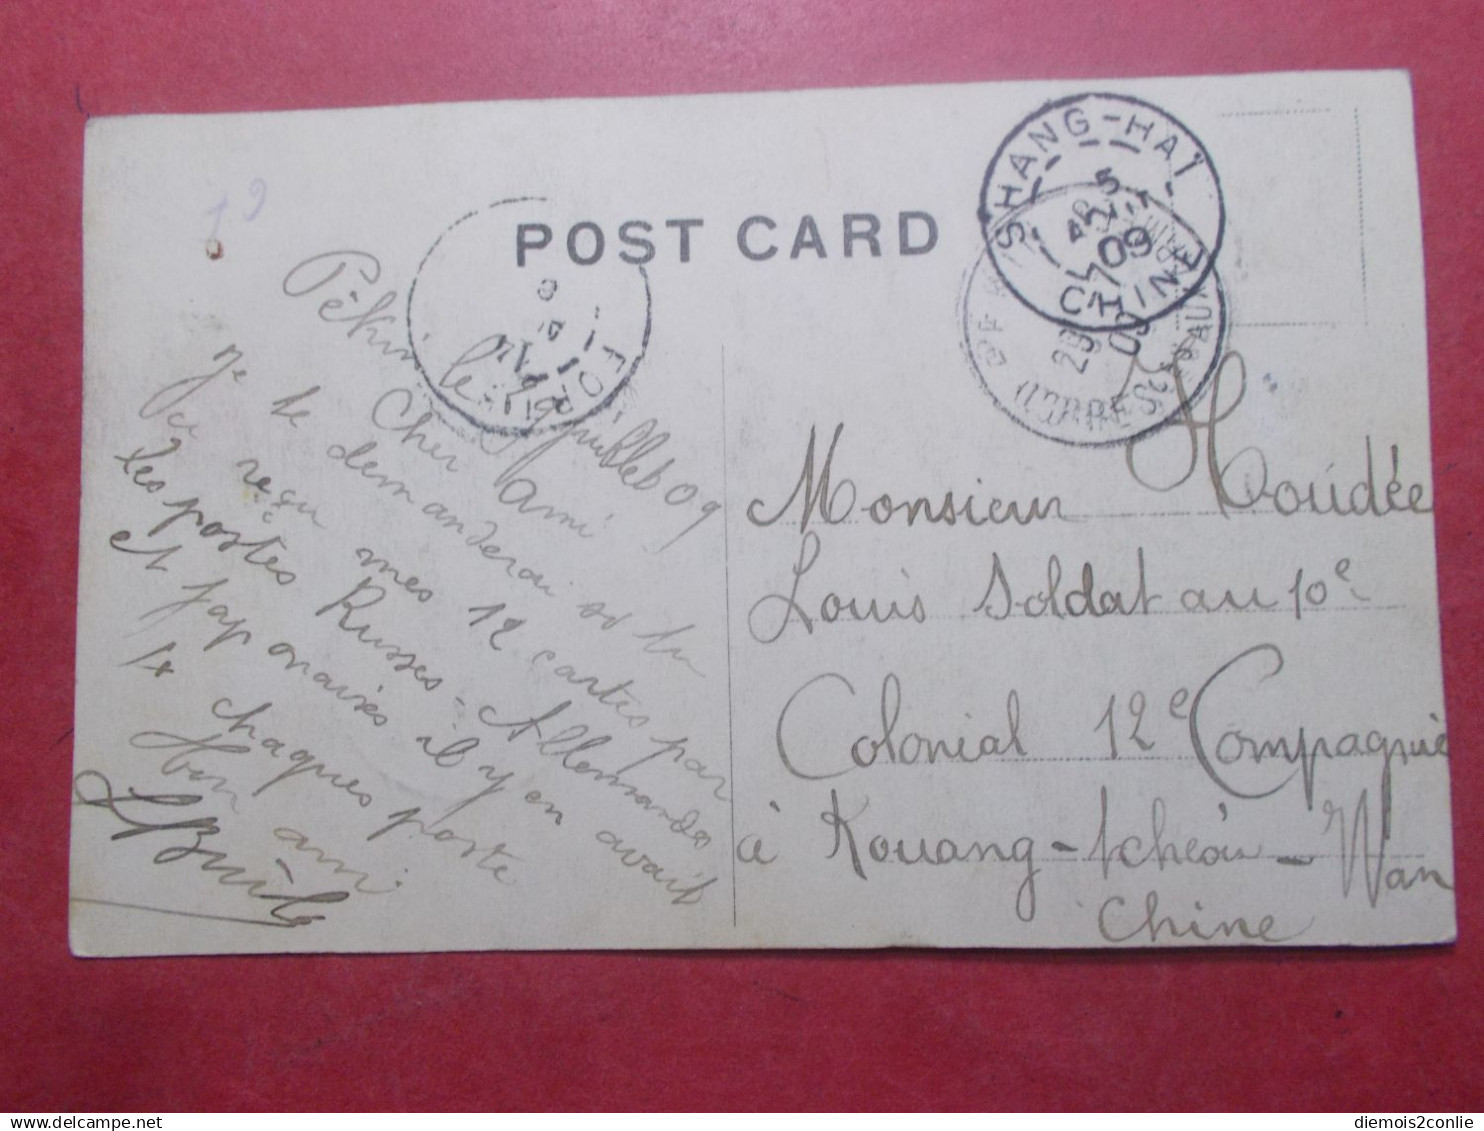 19
POST CARD
SHANG-HAÏ
5
09
CHINE
CORRESP
29
09
FOR
Pékin le Juillet 09
Cher Ami
Je te demanderai si tu
a reçu mes 12 cartes par
les postes Russes - Allemandes
et japonaises il y en avait
4 chaques poste
ton ami
Monsieur Houdée
Louis Soldat au 10e
Colonial 12e Compagnie
à Kouang-tchéou-Wan
Chine
diemois2conlie